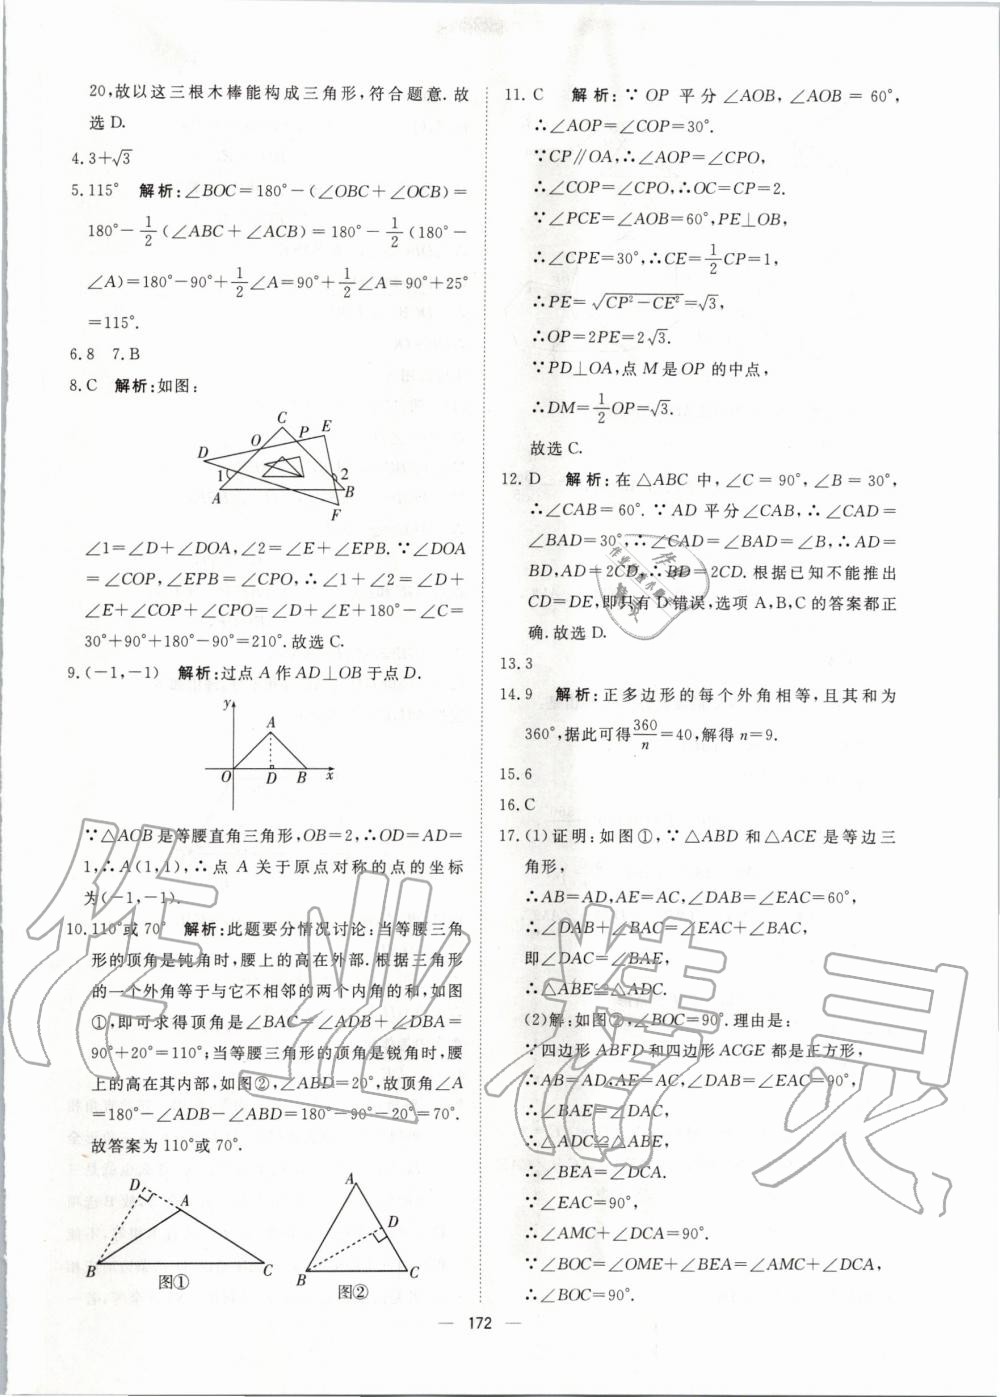 20,故以这三根木棒能构成三角形,符合题意.故
选D.
4.3+√3
5.115° 解析:∠BOC=180°-(∠OBC+∠OCB)=
180°-1/2(∠ABC+∠ACB)=180°-1/2(180°-
∠A)=180°-90°+1/2∠A=90°+1/2∠A=90°+25°
=115°.
6.8 7.B
8.C 解析:如图:
C
O P E
D
1 2
A B
F
∠1=∠D+∠DOA,∠2=∠E+∠EPB.∵∠DOA
=∠COP,∠EPB=∠CPO,∴∠1+∠2=∠D+
∠E+∠COP+∠CPO=∠D+∠E+180°-∠C=
30°+90°+180°-90°=210°.故选C.
9.(-1,-1) 解析:过点A作AD⊥OB于点D.
y
A
O D B x
∵△AOB是等腰直角三角形,OB=2,∴OD=AD=
1,∴A(1,1),∴点A关于原点对称的点的坐标
为(-1,-1).
10.110°或70° 解析:此题要分情况讨论:当等腰三角
形的顶角是钝角时,腰上的高在外部.根据三角形
的一个外角等于与它不相邻的两个内角的和,如图
①,即可求得顶角是∠BAC=∠ADB+∠DBA=
90°+20°=110°;当等腰三角形的顶角是锐角时,腰
上的高在其内部,如图②,∠ABD=20°,故顶角∠A
=180°-∠ADB-∠ABD=180°-90°-20°=70°.
故答案为110°或70°.
D A
B C
图①
A
D
B C
图②
11.C 解析:∵OP平分∠AOB,∠AOB=60°,
∴∠AOP=∠COP=30°.
∵CP∥OA,∴∠AOP=∠CPO,
∴∠COP=∠CPO,∴OC=CP=2.
∵∠PCE=∠AOB=60°,PE⊥OB,
∴∠CPE=30°,∴CE=1/2CP=1,
∴PE=√(CP²-CE²)=√3,
∴OP=2PE=2√3.
∵PD⊥OA,点M是OP的中点,
∴DM=1/2OP=√3.
故选C.
12.D 解析:在△ABC中,∠C=90°,∠B=30°,
∴∠CAB=60°.∵AD平分∠CAB,∴∠CAD=
∠BAD=30°,∴∠CAD=∠BAD=∠B,∴AD=
BD,AD=2CD,∴BD=2CD.根据已知不能推出
CD=DE,即只有D错误,选项A,B,C的答案都正
确.故选D.
13.3
14.9 解析:正多边形的每个外角相等,且其和为
360°,据此可得360/n=40,解得n=9.
15.6
16.C
17.(1)证明:如图①,∵△ABD和△ACE是等边三
角形,
∴AB=AD,AE=AC,∠DAB=∠EAC=60°,
∴∠DAB+∠BAC=∠EAC+∠BAC,
即∠DAC=∠BAE,
∴△ABE≌△ADC.
(2)解:如图②,∠BOC=90°.理由是:
∵四边形ABFD和四边形ACGE都是正方形,
∴AB=AD,AE=AC,∠DAB=∠EAC=90°,
∴∠BAE=∠DAC,
∴△ADC≌△ABE,
∴∠BEA=∠DCA.
∵∠EAC=90°,
∴∠AMC+∠DCA=90°.
∵∠BOC=∠OME+∠BEA=∠AMC+∠DCA,
∴∠BOC=90°.
— 172 —
作业精灵